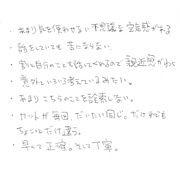 ・あまり気を使わせない不思議な空気感がある
・話をしていても苦にならない。
・割と自分のことも話してくれるので親近感がわく
・意外といろいろ考えているみたい。
・あまりこちらのことを詮索しない。
・カットが毎回、だいたい同じ。だけれども
ちょこっとだけ違う。
・早くて正確。そして丁寧。